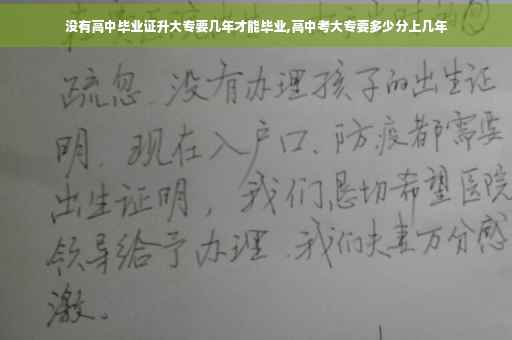 没有高中毕业证升大专要几年才能毕业,高中考大专要多少分上几年
疏忽、没有办理孩子的出生证
明、现在入户口、防疫都需要
出生证明，我们恳切希望医院
领导给予办理、我们夫妻万分感
激。